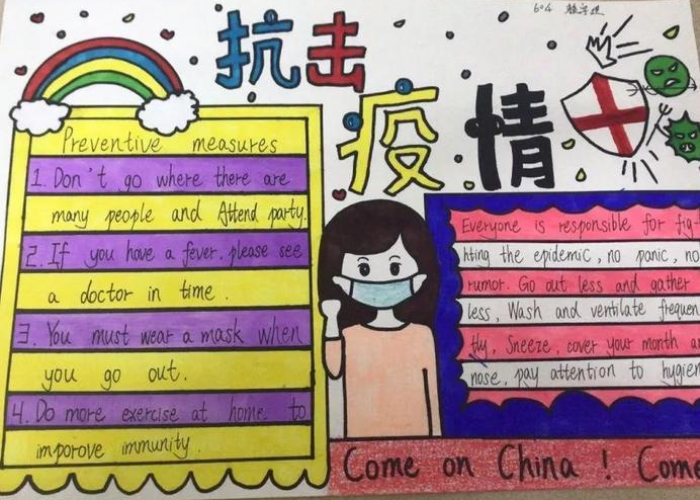 604
抗击
疫情
Preventive measures
1. Don't go where there are
many people and Attend party.
2. If you have a fever, please see
a doctor in time.
3. You must wear a mask when
you go out.
4. Do more exercise at home to
imporove immunity.
Everyone is responsible for fig-
hting the epidemic, no panic, no
rumor. Go out less and gather
less, Wash and ventilate frequen
tly, Sneeze, cover your month
nose, pay attention to hygien
Come on China ! Com